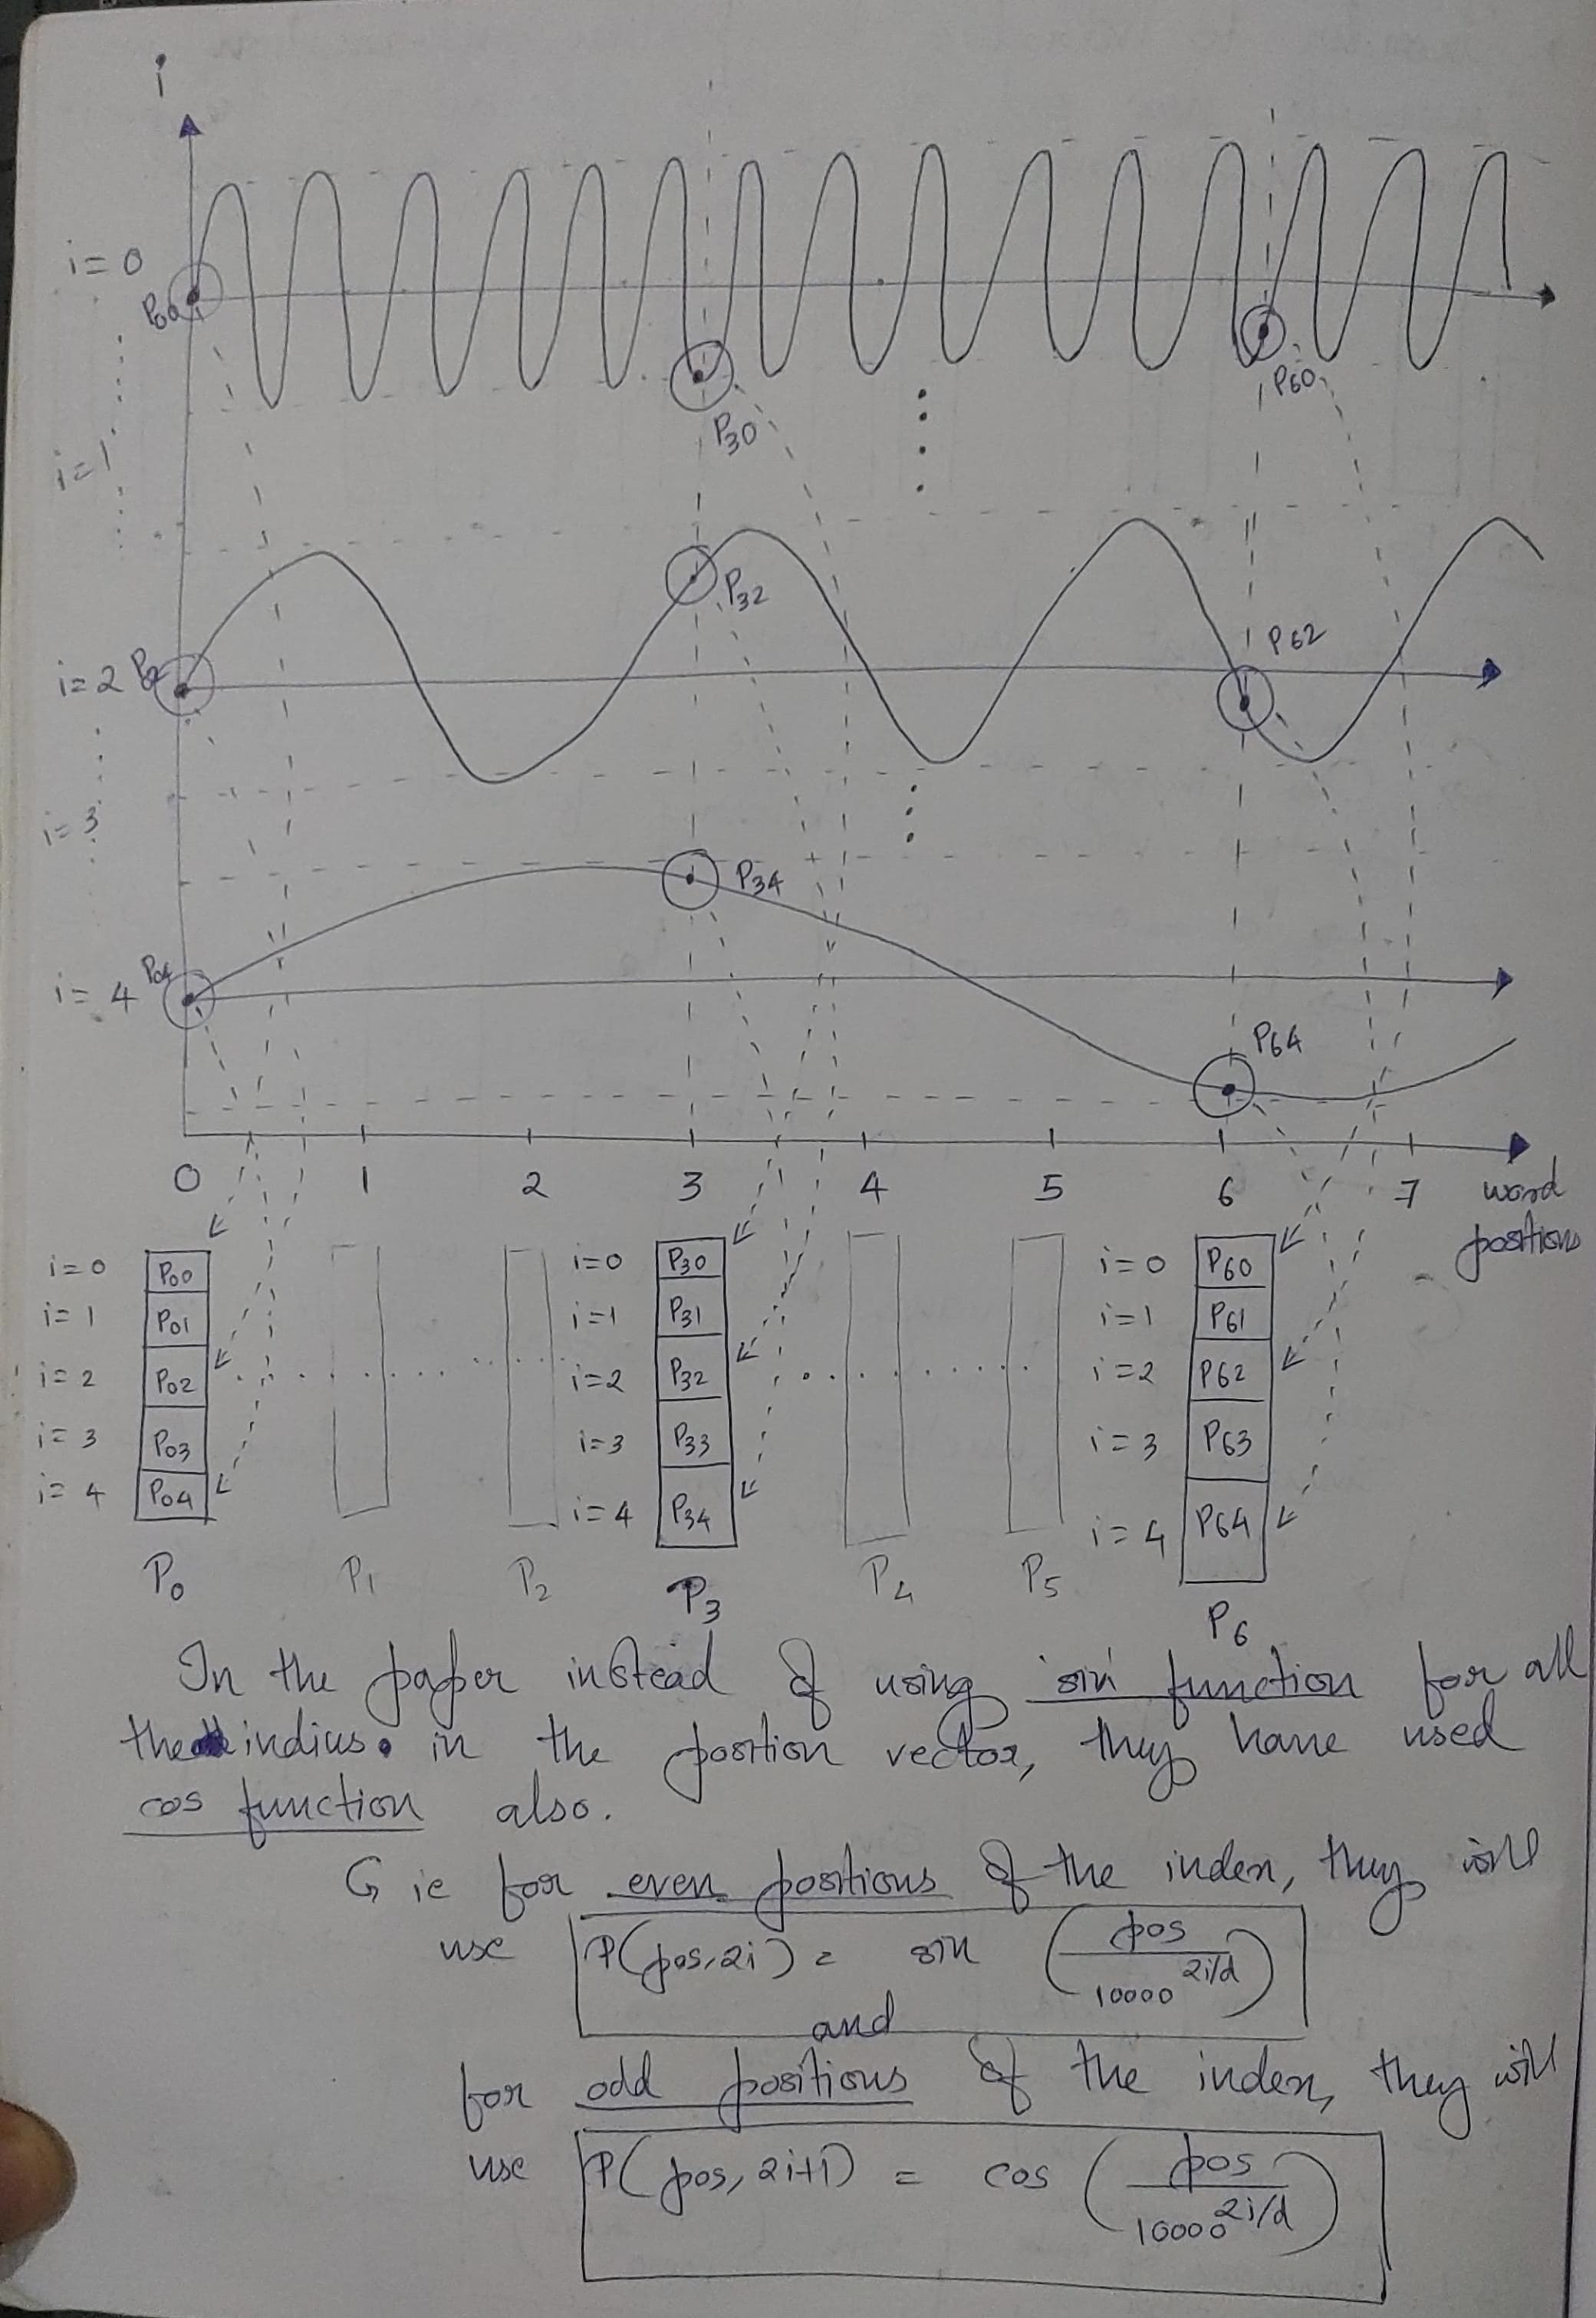 i
i=0
P00
P30
P60
i=1
P32
P62
i=2 P02
i=3
P34
i=4 P04
P64
0 1 2 3 4 5 6 7 word
positions
i=0 P00 i=0 P30 i=0 P60
i=1 P01 i=1 P31 i=1 P61
i=2 P02 i=2 P32 i=2 P62
i=3 P03 i=3 P33 i=3 P63
i=4 P04 i=4 P34 i=4 P64
P0 P1 P2 P3 P4 P5 P6
In the paper instead of using 'sin' function for all
the indius. in the position vector, they have used
cos function also.
↳ ie for even positions of the index, they will
use P(pos, 2i) = sin (pos / 10000^2i/d)
and
for odd positions of the index, they will
use P(pos, 2i+1) = cos (pos / 10000^2i/d)